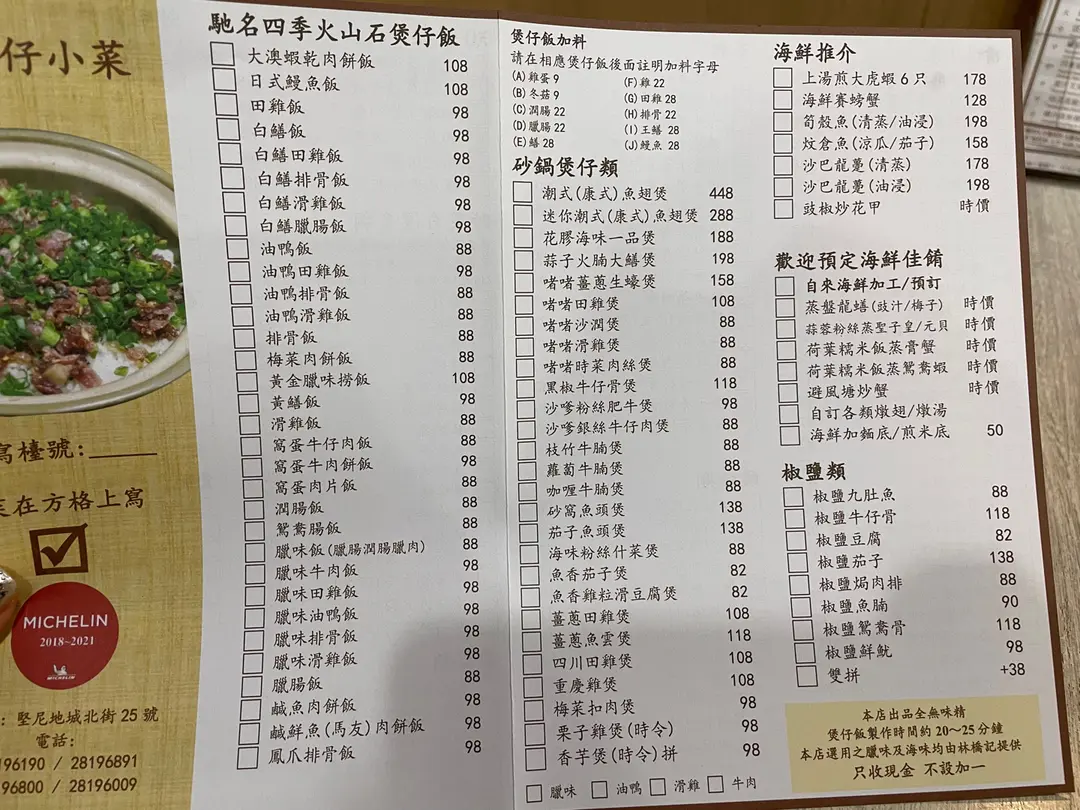 仔小菜
寫檯號:
在方格上寫
MICHELIN
2018~2021
MICHELIN
: 堅尼地城北街 25 號
電話:
196190 / 28196891
96800 / 28196009
馳名四季火山石煲仔飯
大澳蝦乾肉餅飯 108
日式鰻魚飯 108
田雞飯 98
白鱔飯 98
白鱔田雞飯 98
白鱔排骨飯 98
白鱔滑雞飯 98
白鱔臘腸飯 98
油鴨飯 88
油鴨田雞飯 98
油鴨排骨飯 88
油鴨滑雞飯 88
排骨飯 88
梅菜肉餅飯 88
黃金臘味撈飯 108
黃鱔飯 98
滑雞飯 88
窩蛋牛仔肉飯 88
窩蛋牛肉餅飯 98
窩蛋肉片飯 88
潤腸飯 88
鴛鴦腸飯 88
臘味飯(臘腸潤腸臘肉) 88
臘味牛肉飯 98
臘味田雞飯 98
臘味油鴨飯 98
臘味排骨飯 98
臘味滑雞飯 98
臘腸飯 88
鹹魚肉餅飯 98
鹹鮮魚(馬友)肉餅飯 98
鳳爪排骨飯 98
煲仔飯加料
請在相應煲仔飯後面註明加料字母
(A) 雞蛋 9 (F) 雞 22
(B) 冬菇 9 (G) 田雞 28
(C) 潤腸 22 (H) 排骨 22
(D) 臘腸 22 (I) 王鱔 28
(E) 鱔 28 (J) 鰻魚 28
砂鍋煲仔類
潮式(康式)魚翅煲 448
迷你潮式(康式)魚翅煲 288
花膠海味一品煲 188
蒜子火腩大鱔煲 198
啫啫薑蔥生蠔煲 158
啫啫田雞煲 108
啫啫沙潤煲 88
啫啫滑雞煲 88
啫啫時菜肉絲煲 88
黑椒牛仔骨煲 118
沙嗲粉絲肥牛煲 98
沙嗲銀絲牛仔肉煲 88
枝竹牛腩煲 88
蘿蔔牛腩煲 88
咖喱牛腩煲 88
砂窩魚頭煲 138
茄子魚頭煲 138
海味粉絲什菜煲 88
魚香茄子煲 82
魚香雞粒滑豆腐煲 82
薑蔥田雞煲 108
薑蔥魚雲煲 118
四川田雞煲 108
重慶雞煲 108
梅菜扣肉煲 98
栗子雞煲(時令) 98
香芋煲(時令)拼 98
臘味 油鴨 滑雞 牛肉
海鮮推介
上湯煎大虎蝦 6 只 178
海鮮賽螃蟹 128
筍殼魚(清蒸/油浸) 198
炆倉魚(涼瓜/茄子) 158
沙巴龍躉(清蒸) 178
沙巴龍躉(油浸) 198
豉椒炒花甲 時價
歡迎預定海鮮佳餚
自來海鮮加工/預訂
蒸盤龍鱔(豉汁/梅子) 時價
蒜蓉粉絲蒸聖子皇/元貝 時價
荷葉糯米飯蒸膏蟹 時價
荷葉糯米飯蒸鴛鴦蝦 時價
避風塘炒蟹 時價
自訂各類燉翅/燉湯
海鮮加麵底/煎米底 50
椒鹽類
椒鹽九肚魚 88
椒鹽牛仔骨 118
椒鹽豆腐 82
椒鹽茄子 138
椒鹽焗肉排 88
椒鹽魚腩 90
椒鹽鴛鴦骨 118
椒鹽鮮魷 98
雙拼 +38
本店出品全無味精
煲仔飯製作時間約 20～25 分鐘
本店選用之臘味及海味均由林橋記提供
只收現金 不設加一